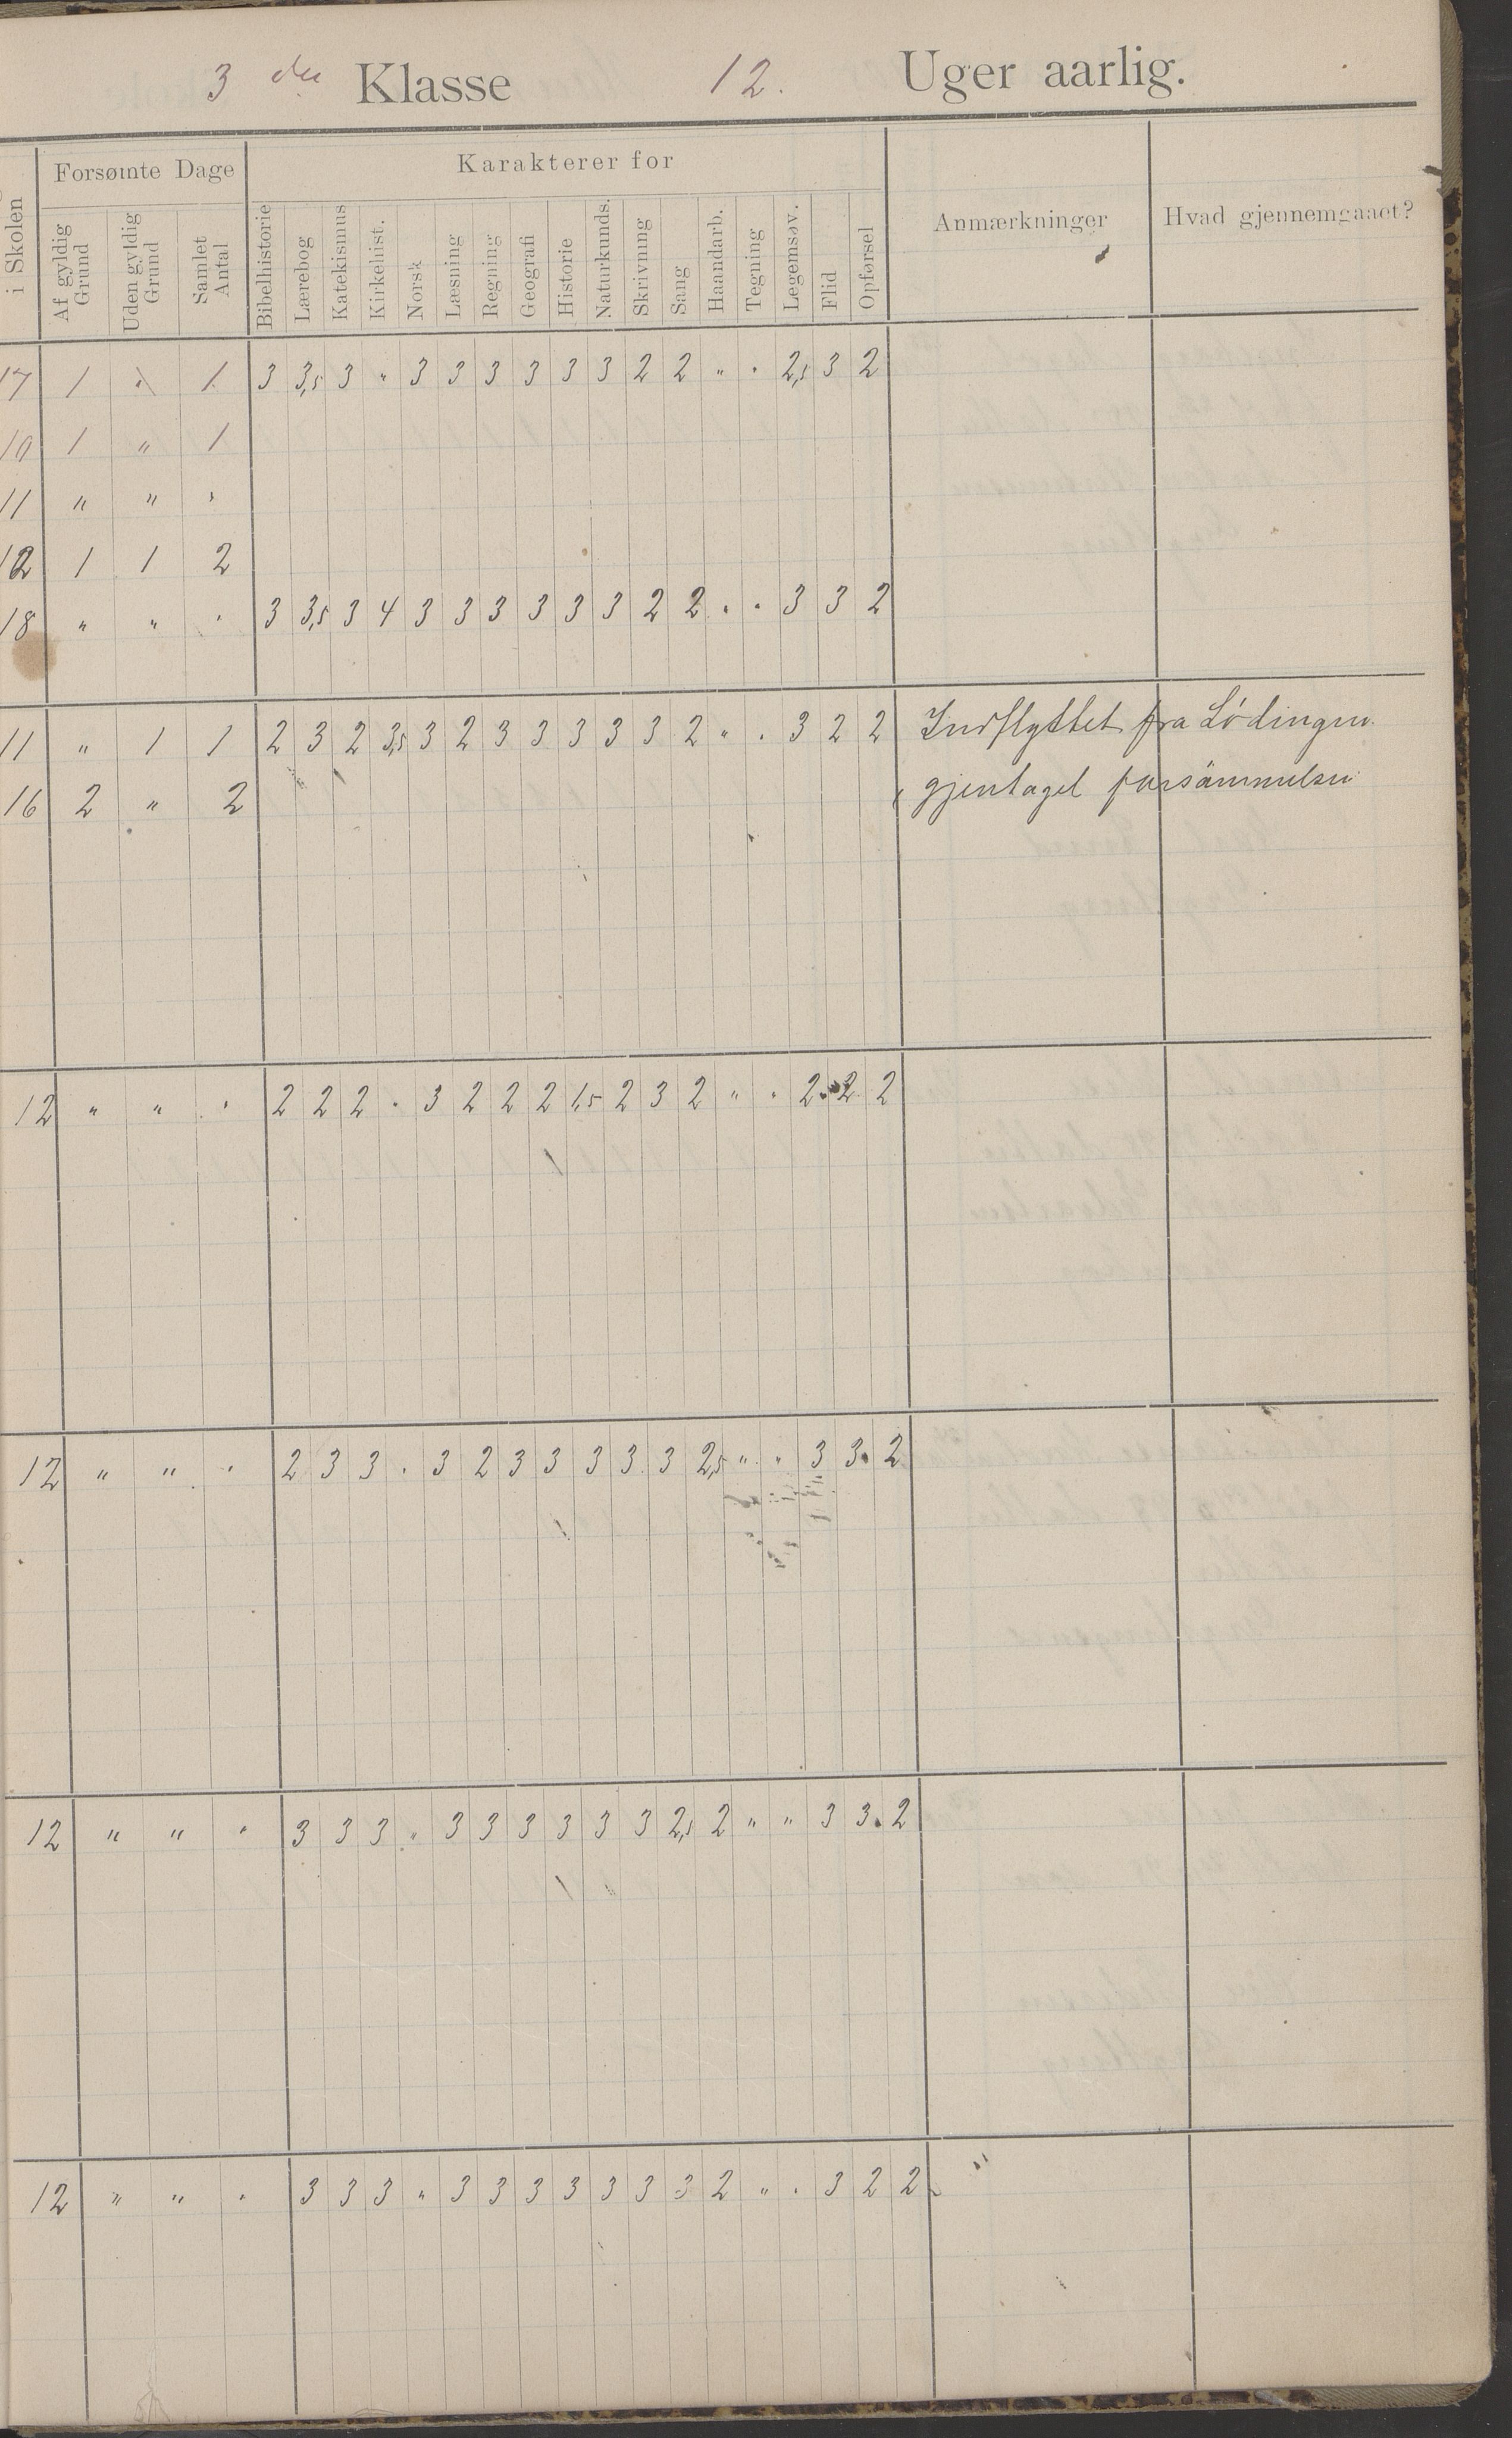 3 die Klasse 12. Uger aarlig.
i Skolen
Forsømte Dage
Karakterer for
Anmærkninger
Hvad gjennemgaaet?
Af gyldig Grund
Uden gyldig Grund
Samlet Antal
Bibelhistorie
Lærebog
Katekismus
Kirkehist.
Norsk
Læsning
Regning
Geografi
Historie
Naturkunds.
Skrivning
Sang
Haandarb.
Tegning
Legemsøv.
Flid
Opførsel
17 1 " 1 3 3,5 3 " 3 3 3 3 3 3 2 2 " " 2,5 3 2
10 1 " 1
11 " " "
12 1 1 2
18 " " " 3 3,5 3 4 3 3 3 3 3 3 2 2 " " 3 3 2
11 " 1 1 2 3 2 3,5 3 2 3 3 3 3 3 2 " " 3 2 2 Indflyttet fra Lødingen.
16 2 " 2 gjentaget forsømmelse
12 " " " 2 2 2 " 3 2 2 2 1,5 2 3 2 " " 2 2 2
12 " " " 2 3 3 " 3 2 3 3 3 3 3 2,5 " " 3 3 2
12 " " " 3 3 3 " 3 3 3 3 3 3 2,5 2 " " 3 3 2
12 " " " 3 3 3 " 3 3 3 3 3 3 3 2 " " 3 2 2